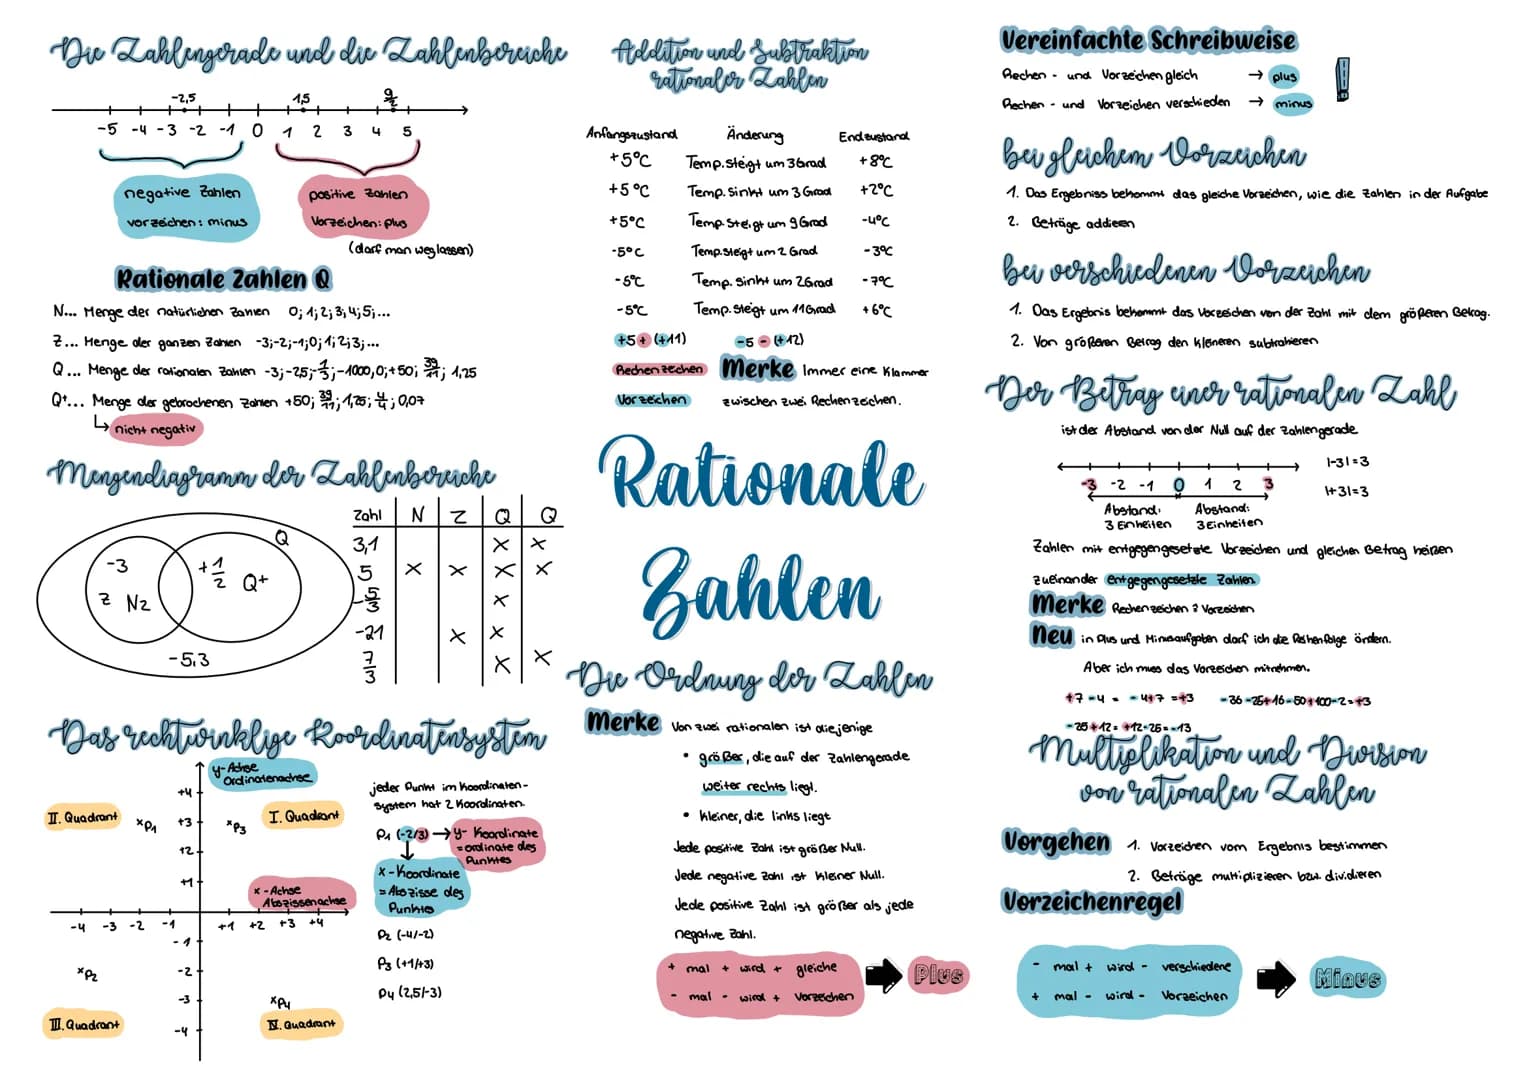 Die Zahlengerade und die Zahlenbereiche
-2,5 1,5 9/2
-5 -4 -3 -2 -1 0 1 2 3 4 5
negative Zahlen
vorzeichen: minus
positive Zahlen
Vorzeichen: plus
(darf man weglassen)
Rationale Zahlen Q
N... Menge der natürlichen Zahlen 0; 1; 2; 3; 4; 5; ...
Z... Menge der ganzen Zahlen -3; -2; -1; 0; 1; 2; 3; ...
Q... Menge der rationalen Zahlen -3; -2,5; -1/3; -1000, 0; +50; 39/11; 1,25
Q+... Menge der gebrochenen Zahlen +50; 39/11; 1,25; 4/4; 0,07
nicht negativ
Mengendiagramm der Zahlenbereiche
Q
-3
+ 1/2 Q+
Z N2
-5,3
Zahl N Z Q Q
3,1 x x
5 x x x x
-5/3 x
-21 x x
7/3 x x
Das rechtwinklige Koordinatensystem
y-Achse
Ordinatenachse
II. Quadrant
I. Quadrant
III. Quadrant
IV. Quadrant
+4
+3
+2
+1
x P1
x P3
x-Achse
Abszissenachse
-4 -3 -2 -1 +1 +2 +3 +4
-1
-2
-3
-4
x P2
x P4
jeder Punkt im Koordinaten-
system hat 2 Koordinaten.
P1 (-2/3)
y- Koordinate
=ordinate des
Punktes
x-Koordinate
=Abszisse des
Punktes
P2 (-4/-2)
P3 (+1/+3)
P4 (2,5/-3)
Addition und Subtraktion
rationaler Zahlen
Anfangszustand Änderung Endzustand
+5°C Temp. steigt um 3 Grad +8°C
+5°C Temp. sinkt um 3 Grad +2°C
+5°C Temp. steigt um 9 Grad -4°C
-5°C Temp. steigt um 2 Grad -3°C
-5°C Temp. sinkt um 2 Grad -7°C
-5°C Temp. steigt um 11 Grad +6°C
+5 + (+11) -5 - (+12)
Rechenzechen
Vorzeichen
Merke Immer eine Klammer
zwischen zwei Rechenzeichen.
Rationale
Zahlen
Die Ordnung der Zahlen
Merke Von zwei rationalen ist diejenige
• größer, die auf der Zahlengerade
weiter rechts liegt.
• kleiner, die links liegt
Jede positive Zahl ist größer Null.
Jede negative Zahl ist kleiner Null.
Jede positive Zahl ist größer als jede
negative Zahl.
+ mal + wird + gleiche
- mal - wird + Vorzeichen
Plus
Vereinfachte Schreibweise
Rechen - und Vorzeichen gleich → plus
Rechen - und Vorzeichen verschieden → minus
bei gleichem Vorzeichen
1. Das Ergebniss bekommt das gleiche Vorzeichen, wie die Zahlen in der Aufgabe
2. Beträge addieren
bei verschiedenen Vorzeichen
1. Das Ergebnis bekommt das Vorzeichen von der Zahl mit dem größeren Betrag.
2. Von größeren Betrag den kleineren subtrahieren
Der Betrag einer rationalen Zahl
ist der Abstand von der Null auf der Zahlengerade
-3 -2 -1 0 1 2 3
Abstand: Abstand:
3 Einheiten 3 Einheiten
|-3|=3
|+3|=3
Zahlen mit entgegengesetzte Vorzeichen und gleichen Betrag heißen
zueinander entgegengesetzte Zahlen
Merke Rechenzeichen ≥ Vorzeichen
Neu in Plus und Minusaufgaben darf ich die Reihenfolge ändern.
Aber ich muss das Vorzeichen mitnehmen.
+7-4 = -4+7 =+3 -36-25+16-50+100-2=+3
-25+12= +12-25=-13
Multiplikation und Division
von rationalen Zahlen
Vorgehen 1. Vorzeichen vom Ergebnis bestimmen
2. Beträge multiplizieren bzw. dividieren
Vorzeichenregel
- mal + wird - verschiedene
+ mal - wird - Vorzeichen
Minus